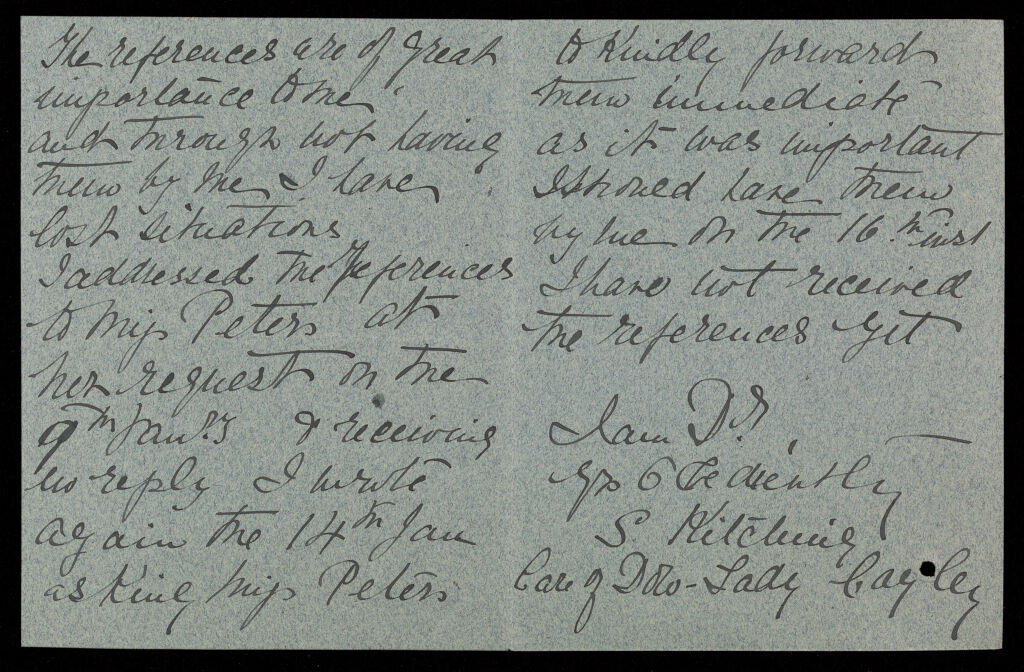 The references are of great
importance to me
and through not having
them by me I have
lost situations
I addressed the References
to Miss Peters at
her request on the
9th Jany & receiving
no reply I wrote
again the 14th Jan
asking Miss Peters
to Kindly forward
them immediate
as it was important
I should have them
by me on the 16th inst
I have not received
the references yet
I am Dr Sr,
Yrs Obediently
S. Kitching
Care of Dow-Lady Cayley